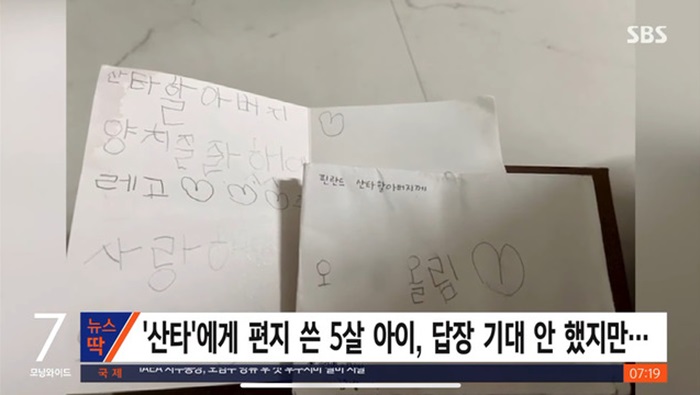 SBS
산타할아버지
양치질 잘 하
레고 ♡♡♡
사랑
♡
핀란드 산타할아버지께
오 올림 ♡
7
모닝와이드
뉴스
딱
'산타'에게 편지 쓴 5살 아이, 답장 기대 안 했지만…
국 제
07:19